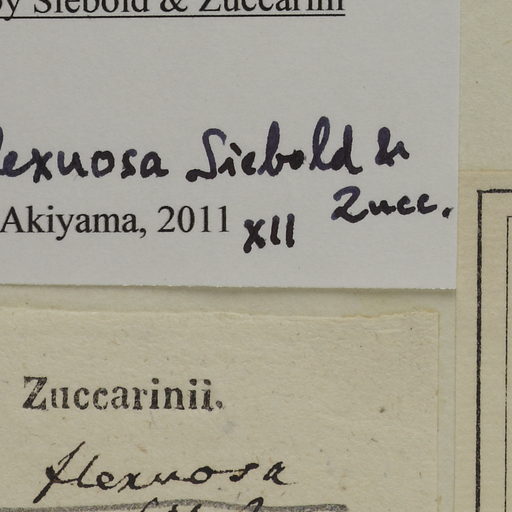 by Siebold & Zuccarini
lexuosa Siebold &
Zucc.
Akiyama, 2011 XII
Zuccarinii.
flexuosa